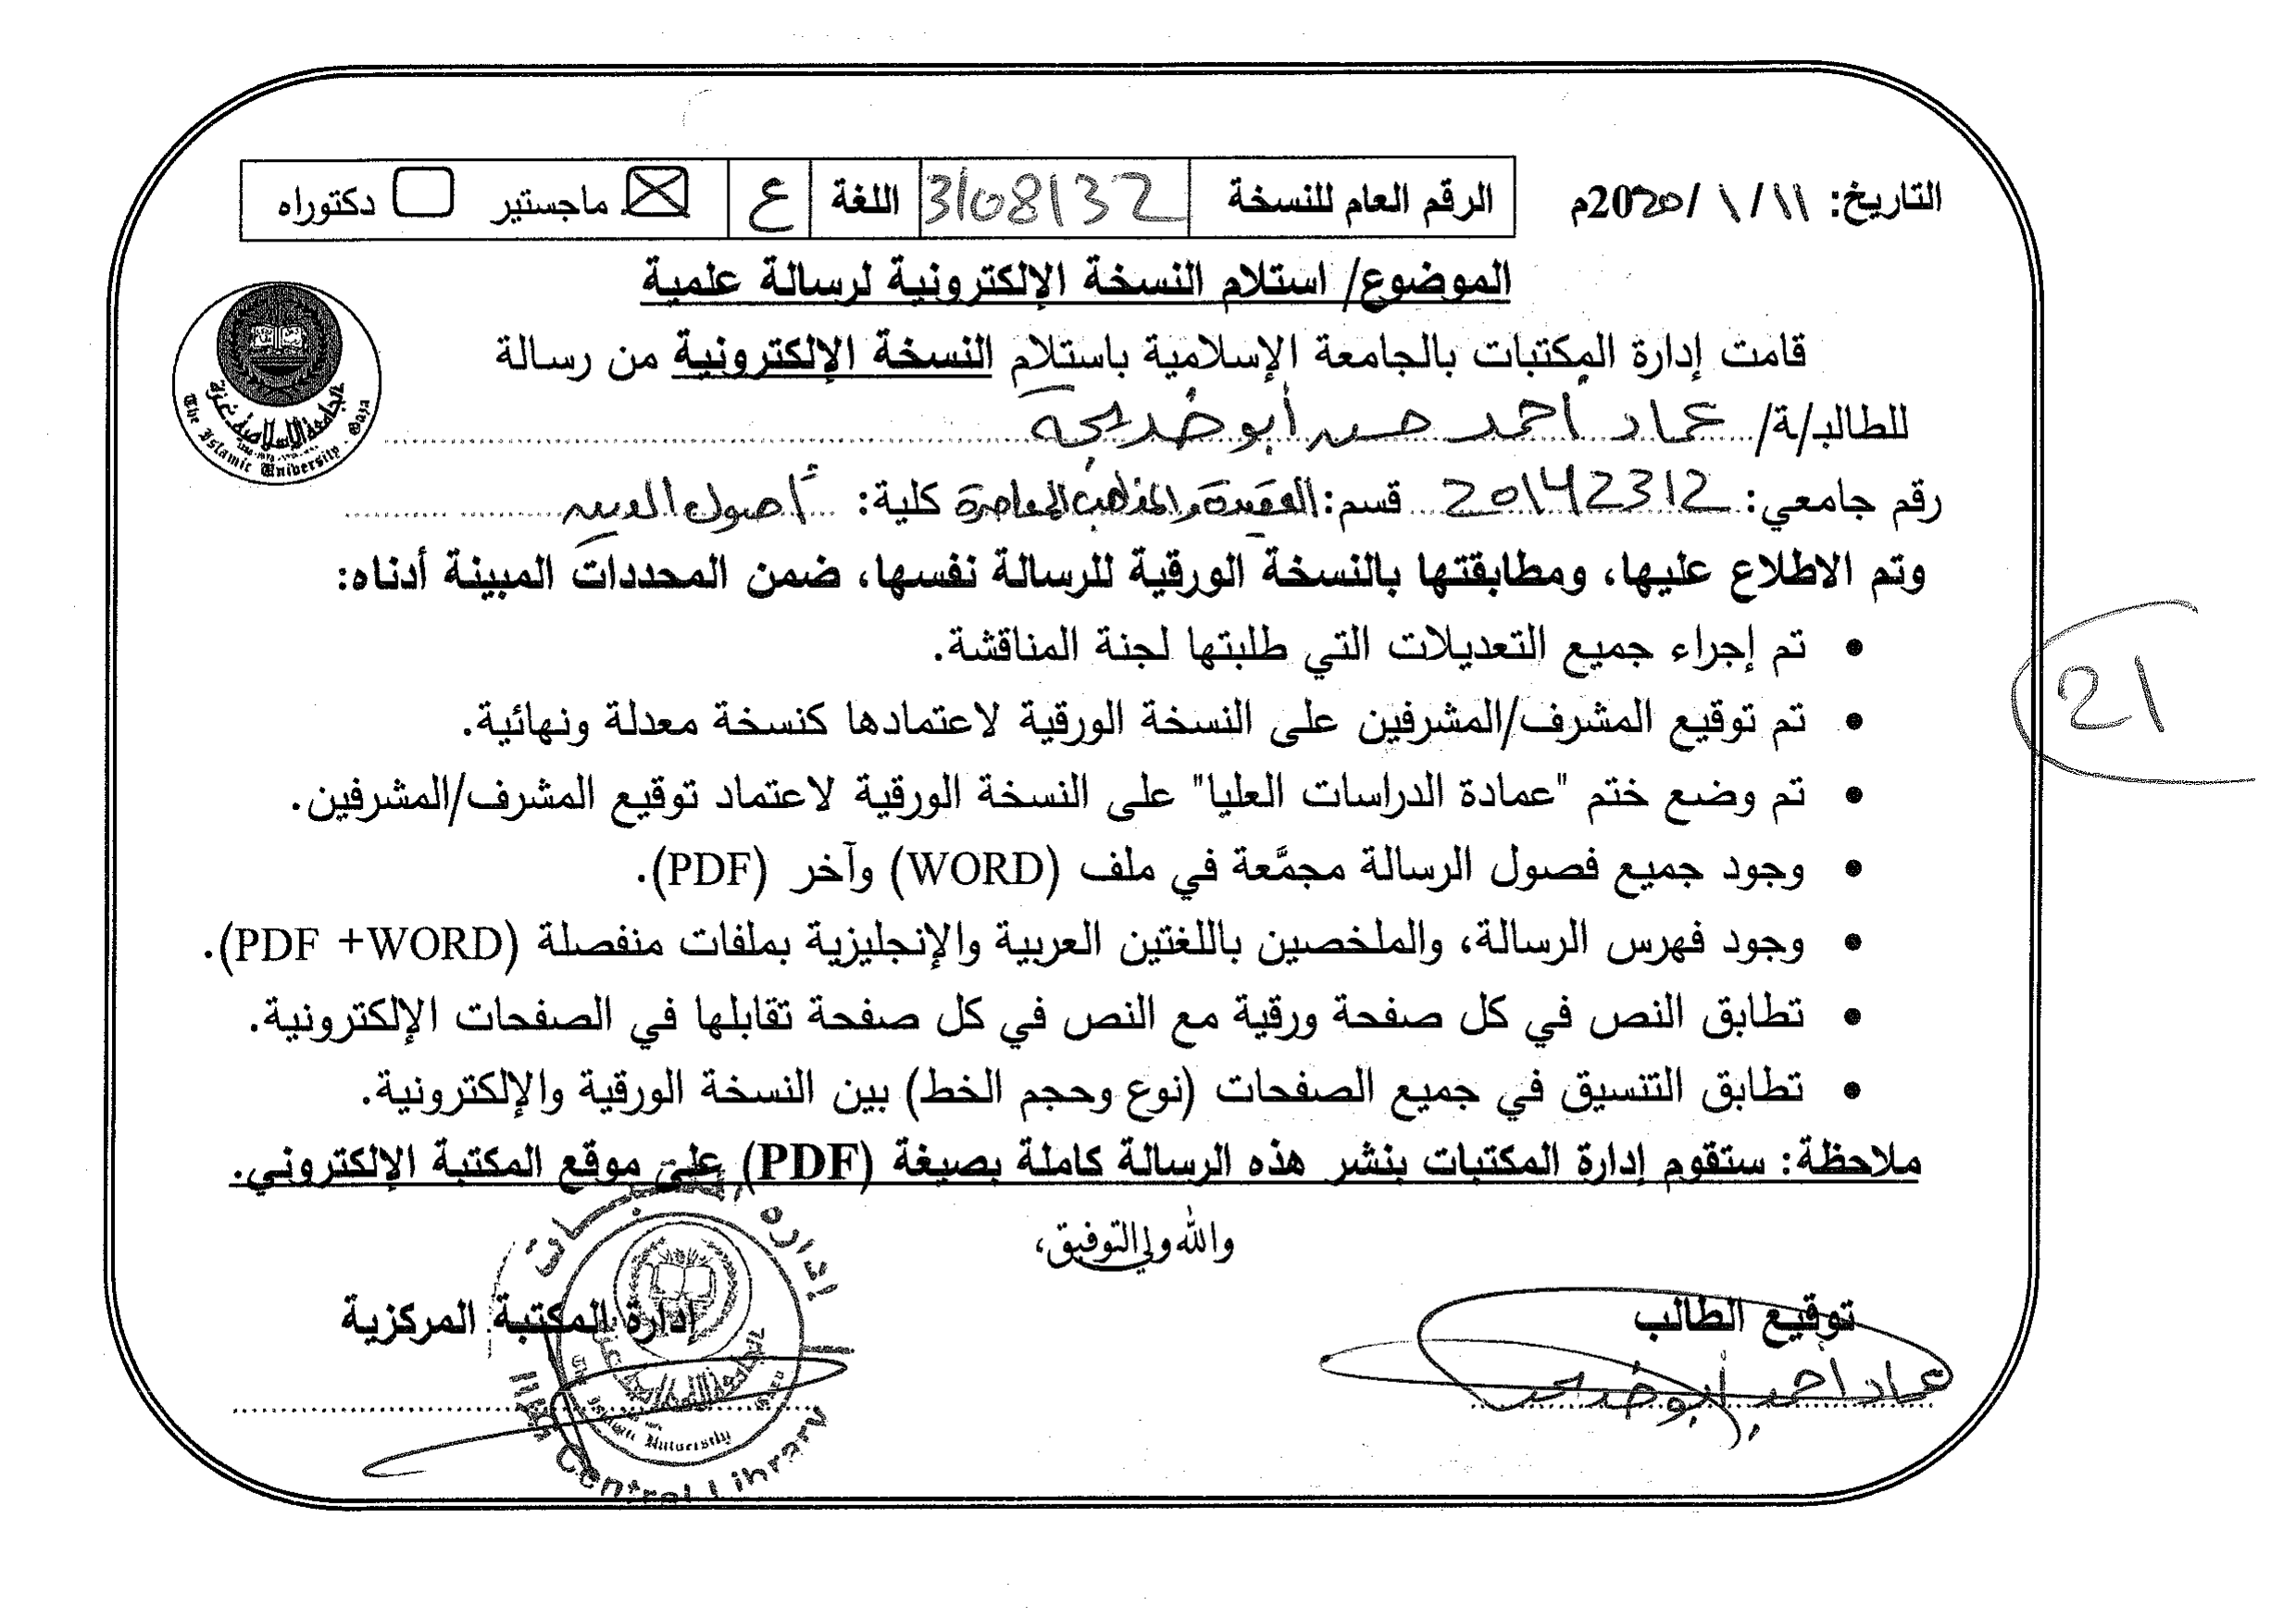 التاريخ: 11 / 1 / 2020م
الرقم العام للنسخة 3108132 اللغة ع ☒ ماجستير ☐ دكتوراه
الموضوع/ استلام النسخة الإلكترونية لرسالة علمية
الجامعة الإسلامية - غزة
The Islamic University - Gaza
قامت إدارة المكتبات بالجامعة الإسلامية باستلام النسخة الإلكترونية من رسالة
للطالب/ة/ عماد أحمد حسن أبو خديجة
رقم جامعي: 20142312 قسم: العقيدة والمذاهب المعاصرة كلية: أصول الدين
وتم الاطلاع عليها، ومطابقتها بالنسخة الورقية للرسالة نفسها، ضمن المحددات المبينة أدناه:
• تم إجراء جميع التعديلات التي طلبتها لجنة المناقشة.
21
• تم توقيع المشرف/المشرفين على النسخة الورقية لاعتمادها كنسخة معدلة ونهائية.
• تم وضع ختم "عمادة الدراسات العليا" على النسخة الورقية لاعتماد توقيع المشرف/المشرفين.
• وجود جميع فصول الرسالة مجمَّعة في ملف (WORD) وآخر (PDF).
• وجود فهرس الرسالة، والملخصين باللغتين العربية والإنجليزية بملفات منفصلة (PDF +WORD).
• تطابق النص في كل صفحة ورقية مع النص في كل صفحة تقابلها في الصفحات الإلكترونية.
• تطابق التنسيق في جميع الصفحات (نوع وحجم الخط) بين النسخة الورقية والإلكترونية.
ملاحظة: ستقوم إدارة المكتبات بنشر هذه الرسالة كاملة بصيغة (PDF) على موقع المكتبة الإلكتروني.
والله ولي التوفيق،
توقيع الطالب
إدارة المكتبة المركزية
عماد أحمد أبو خديجة
Central Library